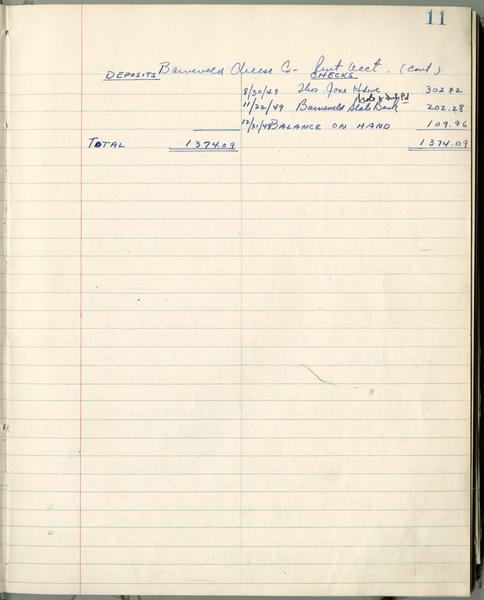 11
Barneveld Cheese Co - Acct. (Cont)
DEPOSITS CHECKS
8/30/49 Thos. Jone Hdwe 302.82
Note & Int Pd
11/22/49 Barneveld State Bank 202.28
12/31/49 BALANCE ON HAND 109.96
TOTAL 1374.09 1374.09